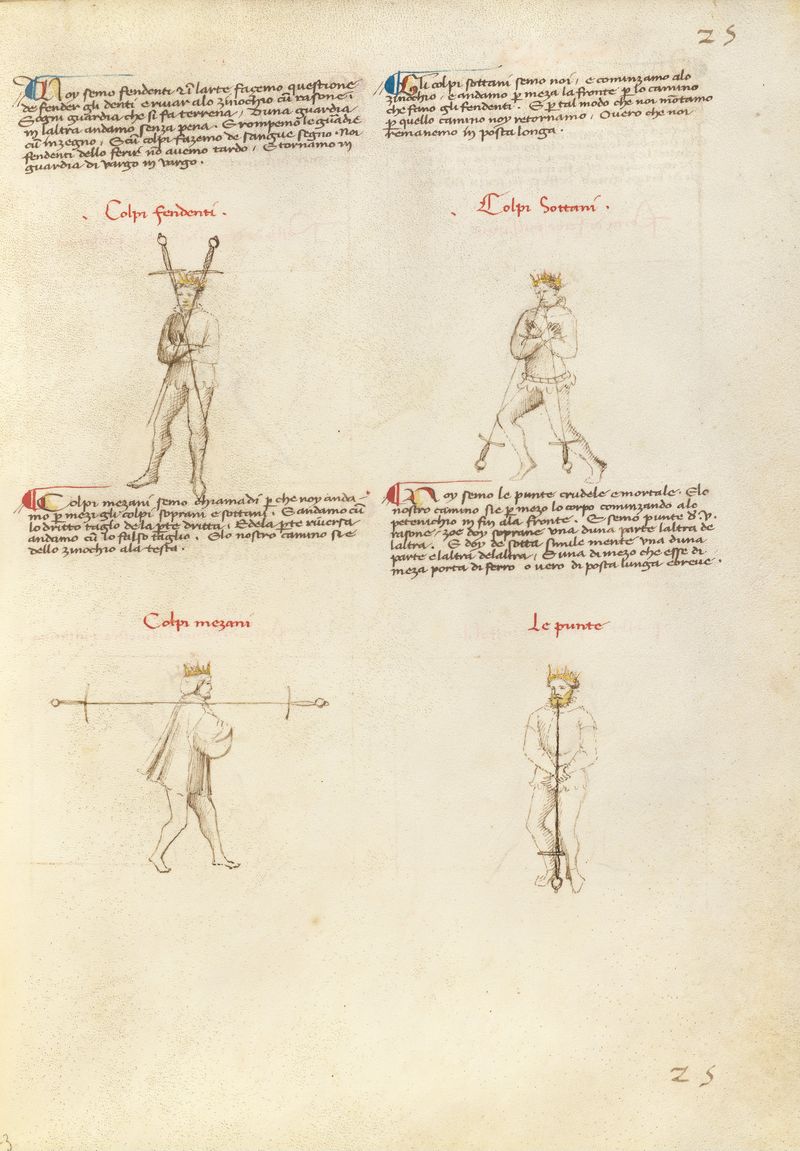 25
Noy semo fendenti e ĩ larte façemo questione
de fender gli denti e rivar alo zinochio cũ rasone.
E ogni guardia che si fa terrena, Duna guardia
in laltra andamo senza pena. E rompemo le guardie
cũ inzegno, E cũ colpi fazemo de sangue segno. Noi
fendenti dello ferir nõ avemo tardo, E tornamo in
guardia di vargo in vargo.
Colpi fendenti.
Gli colpi sottani semo noi, e cominzamo alo
zinochio, e andamo p meza la fronte p lo camino
che fano gli fendenti. E p tal modo che noi mõtamo
p quello camino noy retornamo, Overo che noi
remanemo in posta longa.
Colpi Sottani.
Colpi mezani semo chiamadi p che noy anda-
mo p mezi gli colpi soprani e sottani. E andamo cũ
lo dritto taglo de la pte dritta, E dela pte riversa
andamo cũ lo falso taglio. E lo nostro camino si e
dello zinochio ala testa.
Colpi mezani
Noy semo le punte crudele e mortale. E lo
nostro camino si e p mezo lo corpo cominzando alo
petenichio in fin ala fronte. E semo punte d. v.
rasone, zoe doy soprane una duna parte laltra de
laltra. E doy de sotta simile mente una duna
parte e laltra delaltra, E una di mezo che esse di
meza porta di ferro o vero di posta lunga e breve.
Le punte
25
3